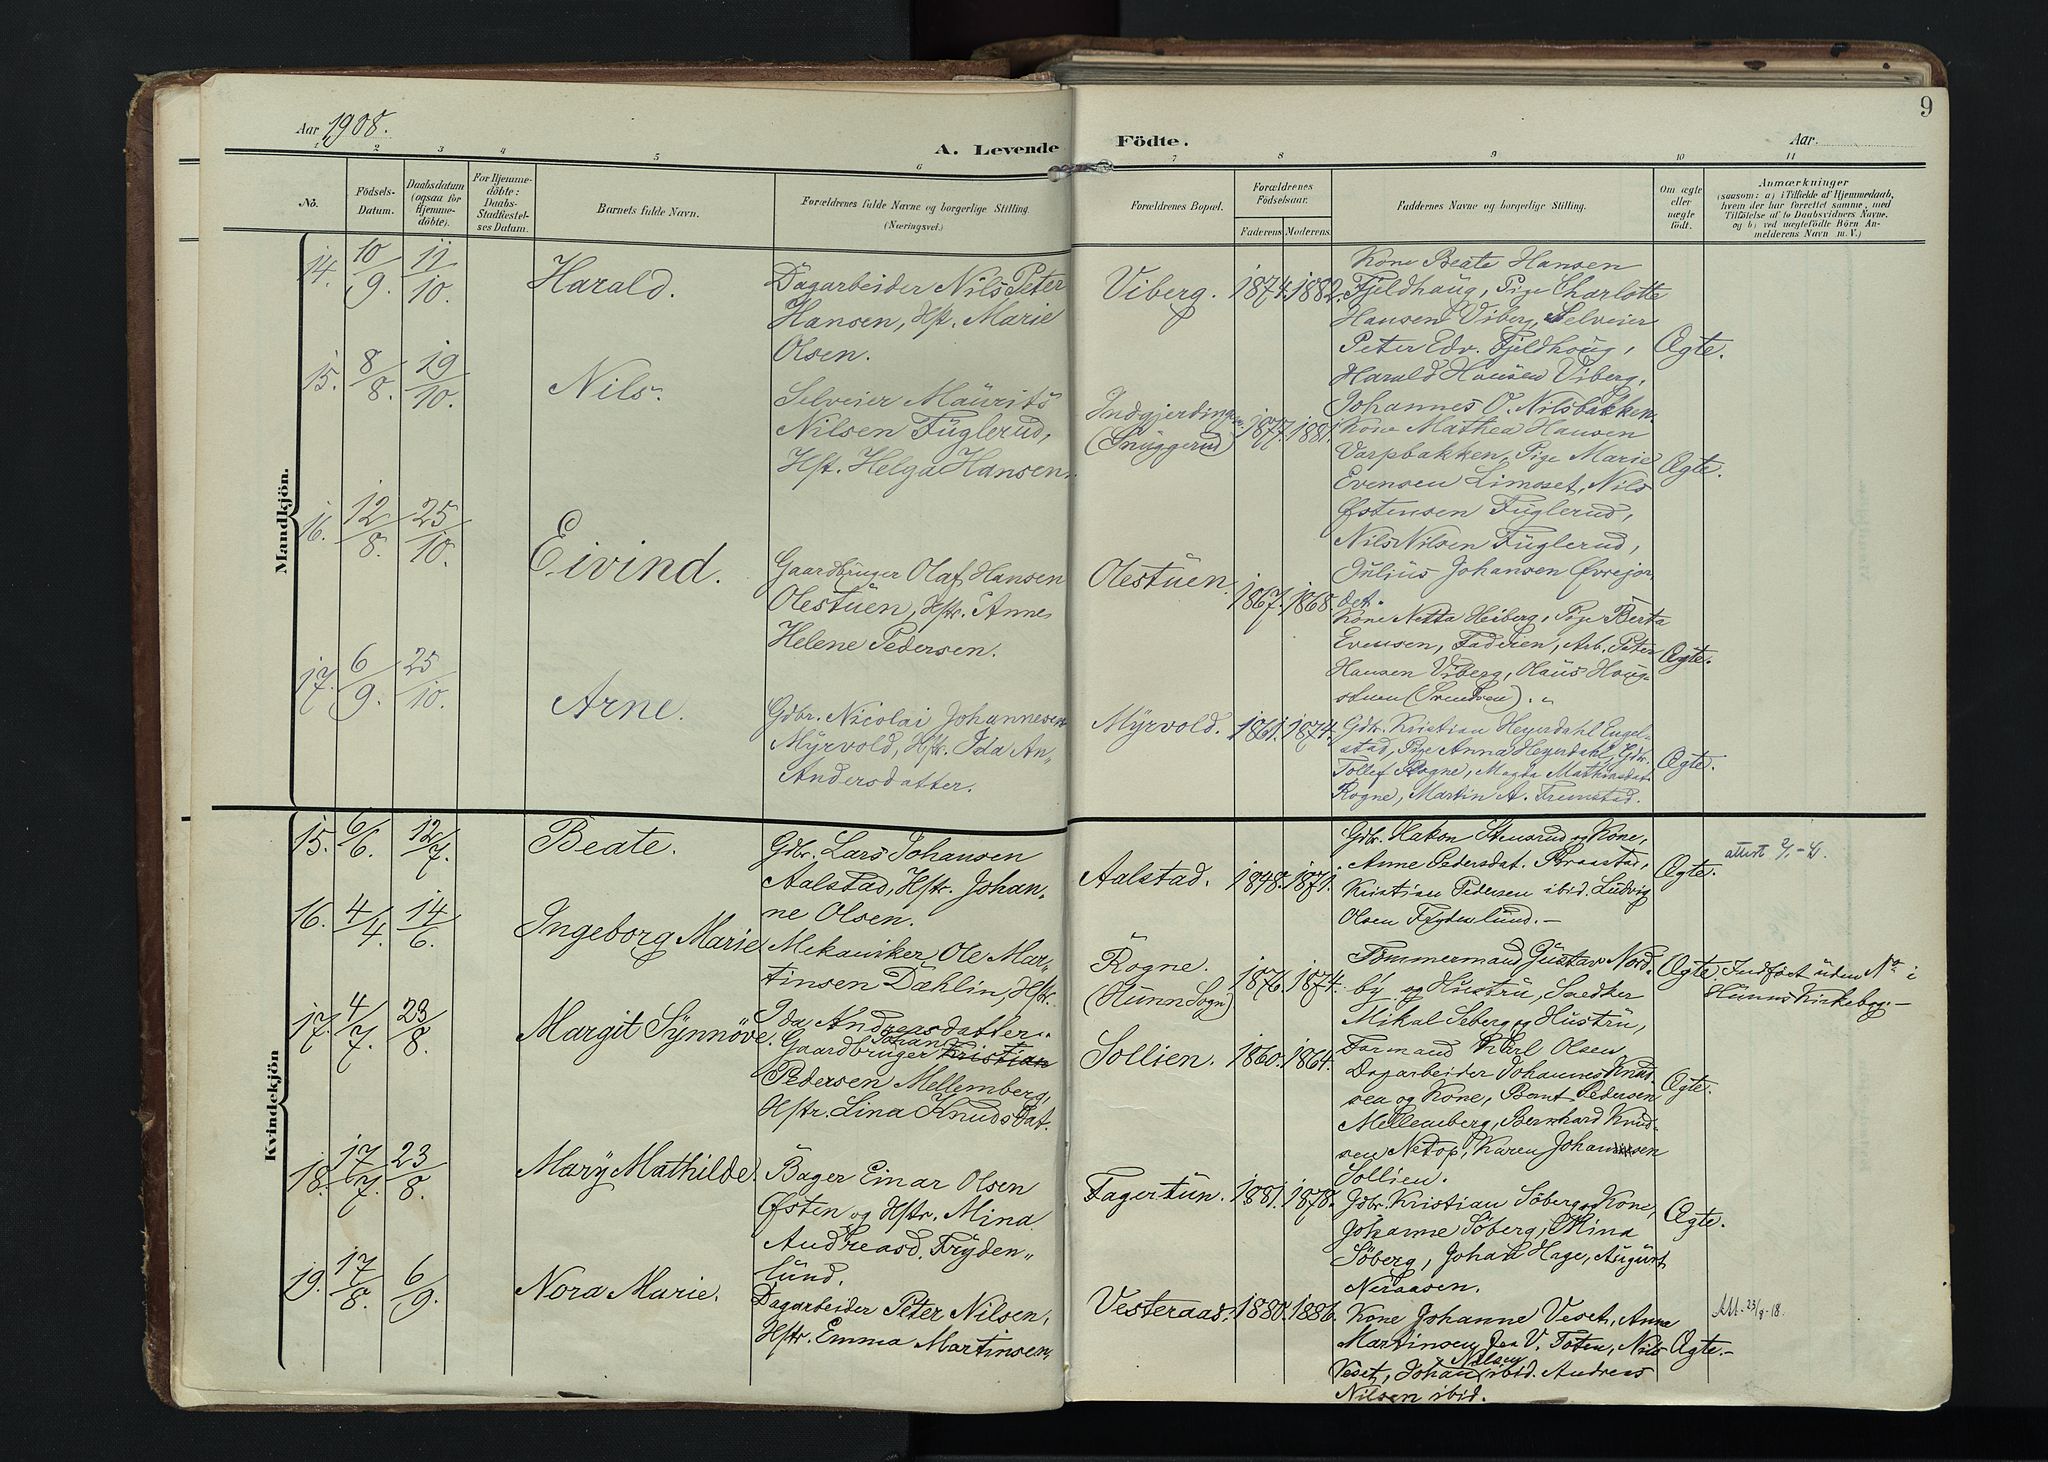 Aar 1908.
A. Levende Födte.
Aar
9
1 2 3 4 5 6 7 8 9 10 11
No.
Födsels-Datum.
Daabsdatum (ogsaa for Hjemmedöbte).
For Hjemmedöbte: Daabs-Stadfæstelses Datum.
Barnets fulde Navn.
Forældrenes fulde Navne og borgerlige Stilling. (Næringsvei.)
Forældrenes Bopæl.
Forældrenes Födselsaar.
Faderens. Moderens.
Faddernes Navne og borgerlige Stilling.
Om ægte eller uægte födt.
Anmærkninger
(saasom: a) i Tilfælde af Hjemmedaab, hvem der har forrettet samme, med Tilföielse af to Daabsvidners Navne, og b) ved uægtefödte Börn Anmelderens Navn m. V.)
Mandkjön.
14. 10/9. 11/10. Harald.
Dagarbeider Nils Peter
Hansen, Hst. Marie
Olsen.
Viberg. 1874. 1882.
Kone Beate Hansen
Fjeldhaug, Pige Charlotte
Hansen Viberg, Selveier
Peter Edv. Fjeldhoug,
Harald Hansen Viberg,
Johannes O. Nilsbakken.
Ægte.
15. 8/8. 19/10. Nils.
Selveier Maurits
Nilsen Fuglerud,
Hst. Helga Hansen.
Indgjerdingen
(Snuggerud) 1877. 1881.
Kone Mathea Hansen
Varpbakken, Pige Marie
Evensen Limoset, Nils
Østensen Fuglerud,
Nils Nilsen Fuglerud,
Julius Johansen Øvrejor
det.
Ægte.
16. 12/8. 25/10. Eivind.
Gaardbruger Olaf Hansen
Olestuen, Hstr. Anne
Helene Pedersen.
Olestuen. 1867. 1868.
Kone Netta Heiberg, Pige Berta
Evensen, Faderen, Arb. Peter
Hansen Viberg, Olaus Houg-
stuen (Svendsen).
Ægte.
17. 6/9. 25/10. Arne.
Gdbr. Nicolai Johannesen
Myrvold, Hstr. Ida An„
Andersdatter.
Myrvold. 1861. 1874.
Gdbr. Kristian Heyerdahl Engel-
stad, Pige Anna Heyerdahl, Gdbr.
Tollef Rogne, Magda Mathiasdat.
Rogne, Martin A. Fremstad.
Ægte.
Kvindekjön
15. 6/6. 12/7. Beate.
Gdbr. Lars Johansen
Aalstad, Hstr. Johan„
ne Olsen.
Aalstad. 1848. 1871.
Gdbr. Hakon Stensrud og Kone,
Anne Pedersdat. Braastad,
Kristian Pedersen ibid. Ludvig
Olsen Frydenlund.—
Ægte.
16. 4/4. 14/6. Ingeborg Marie
Mekaniker Ole Mar„
tinsen Dæhlin, Hstr.
Ida Andreasdatter.
Rogne.
(Hunn Sogn) 1876. 1874.
Tømmermand Gustav Nord-
by og Hustru, Snedker
Mikal Seberg og Hustru,
Formand Karl Olsen
Ægte Indført uden No i
Hunns Kirkebog.—
17. 4/7. 23/8. Margit Synnöve.
Johan
Gaardbruger Kristian
Pedersen Mellemberg,
Hstr. Lina Knudsdat.
Sollien. 1860. 1864.
Dagarbeider Johannes Knud-
sen og Kone, Bernt Pedersen
Mellemberg, Bernhard Knud-
sen Netop, Karen Johansen
Sollien.
Ægte.
18. 17/7. 23/8. Mary Mathilde.
Bager Einar Olsen
Østen og Hstr. Mina
Andreasd. Fryden„
lund.
Fagertun. 1881. 1878.
Gdbr. Kristian Söberg og Kone,
Johanne Söberg, Mina
Söberg, Johan Hage, August
Neraasen.
Ægte.
19. 17/8. 6/9. Nora Marie.
Dagarbeider Peter Nilsen,
Hstr. Emma Martinsen,
Vesteraas. 1880. 1886.
Kone Johanne Veset, Anne
Martinsen fra V. Toten, Nils
Nilsen
Veset, Johan ibid. Andreas
Nilsen ibid.
Ægte.—
Att. 23/8-18.